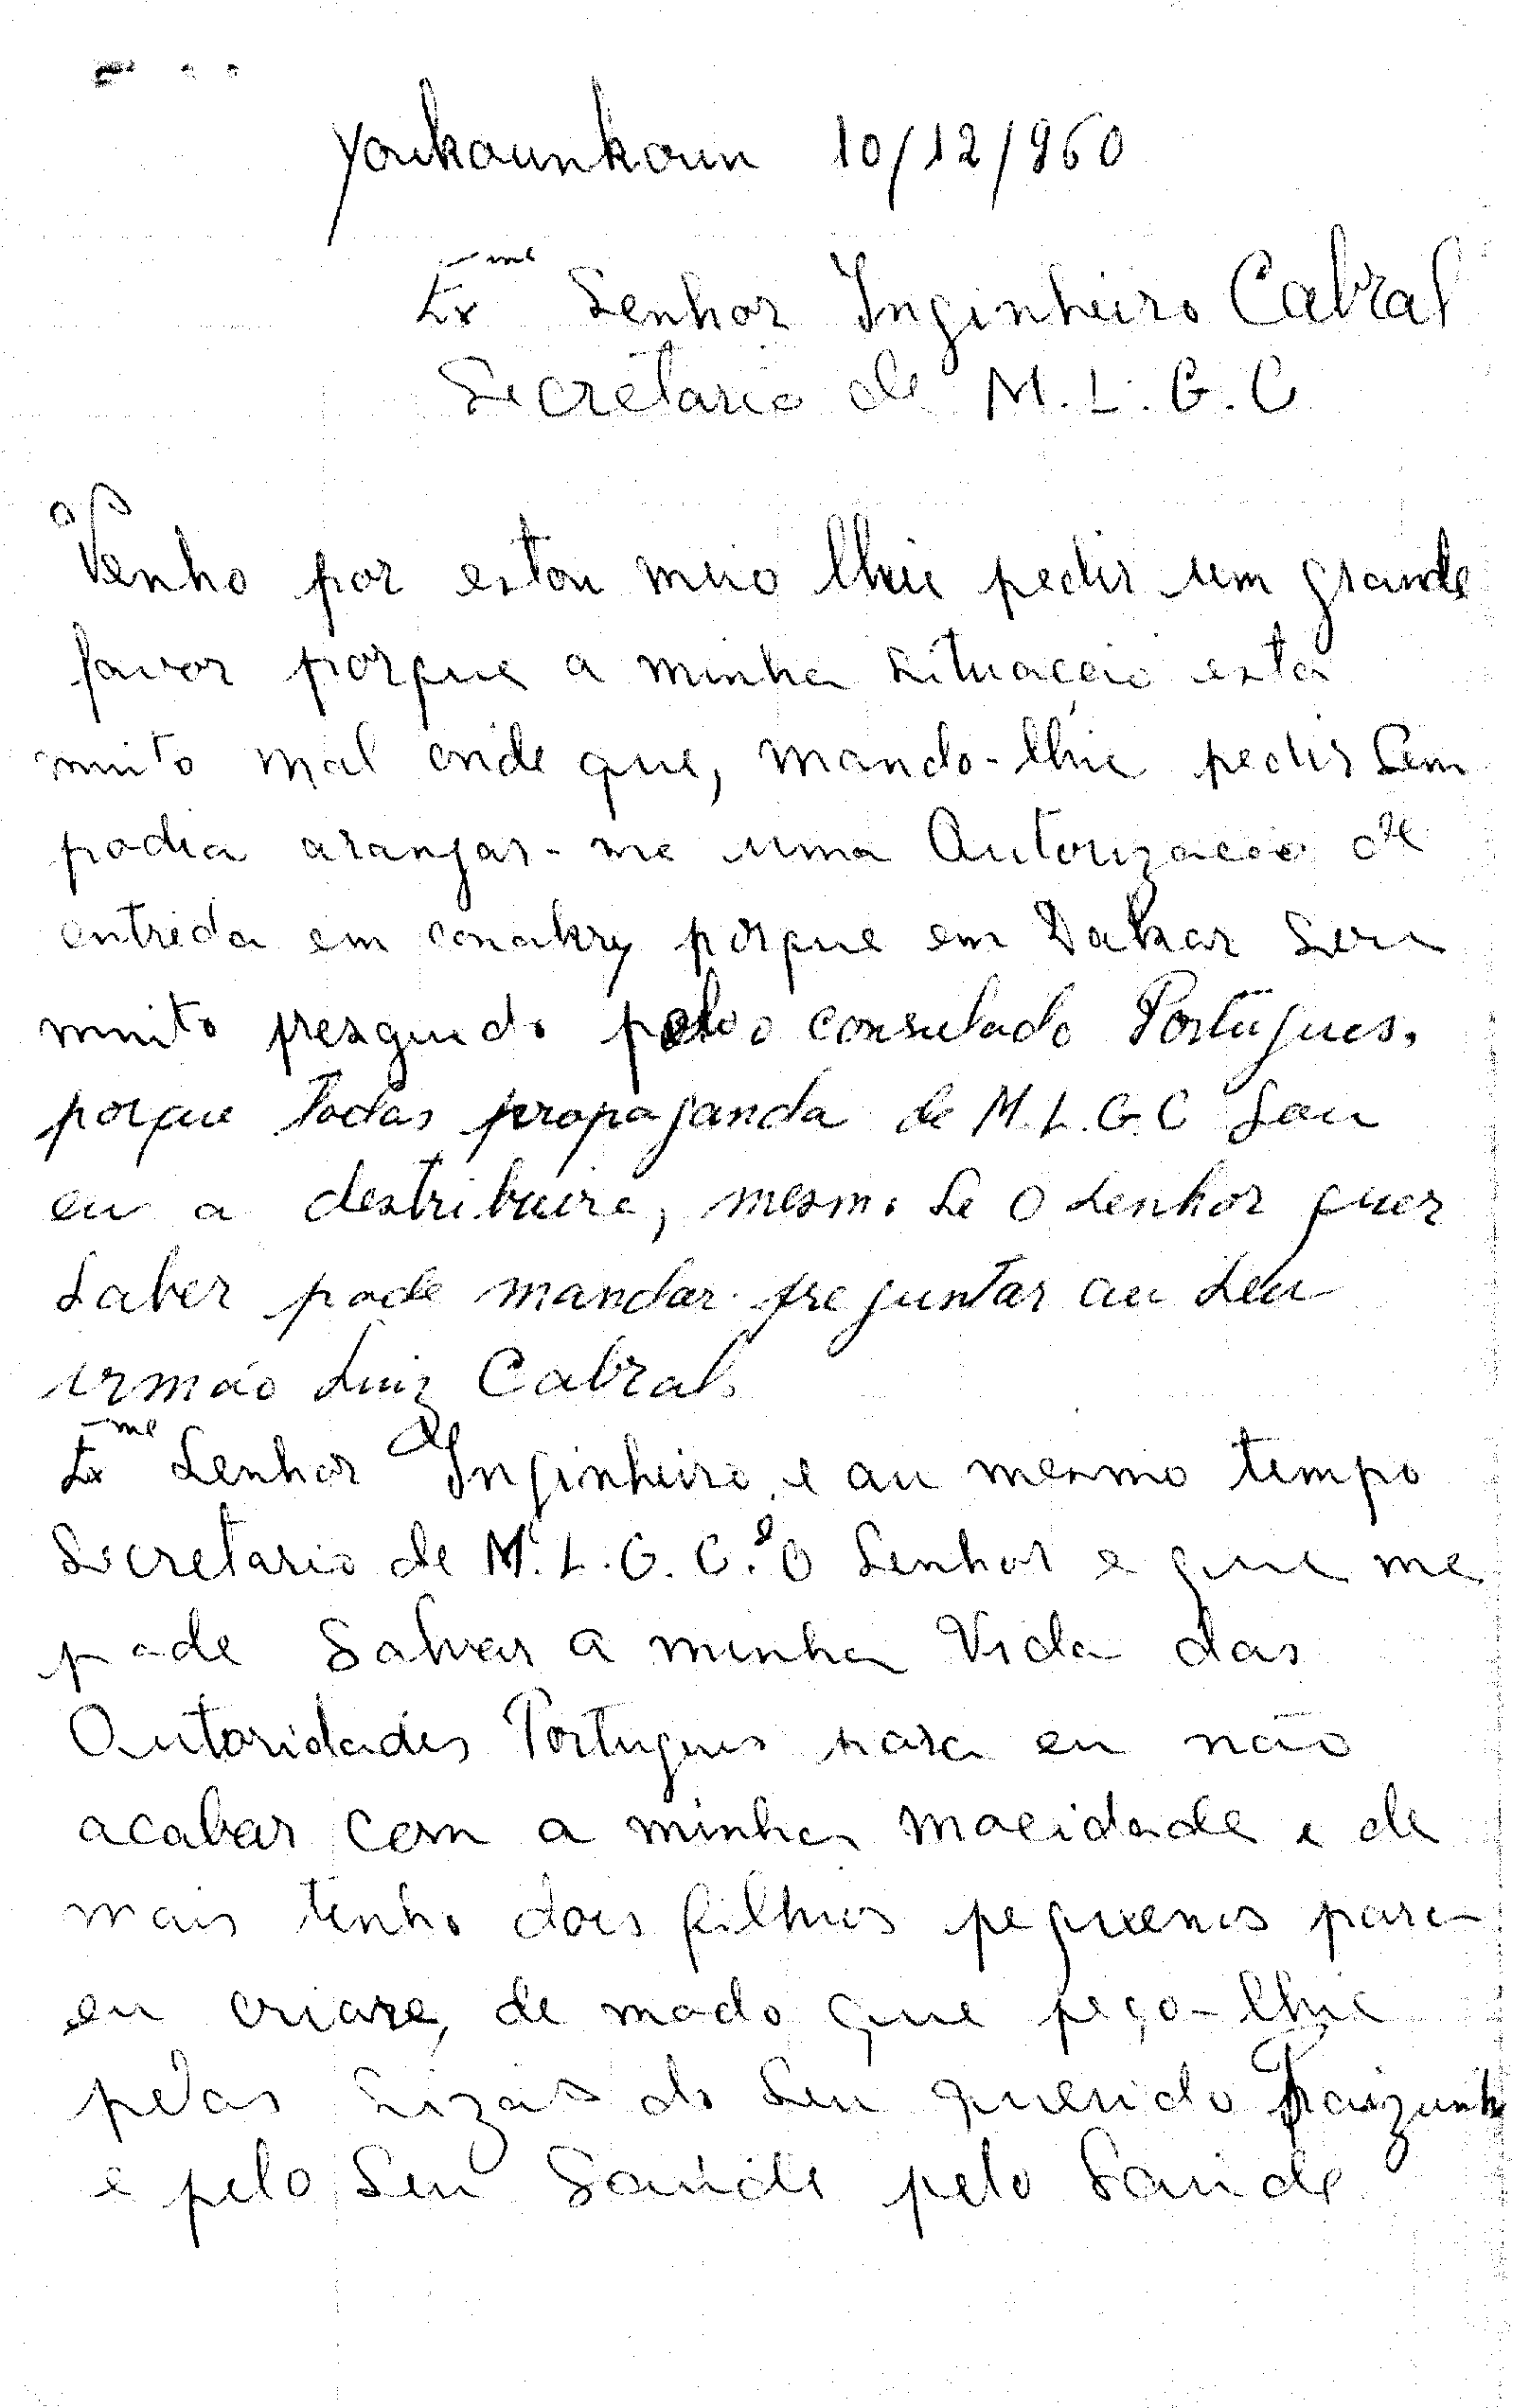 Youkounkoun 10/12/960
Exme Senhor Inginheiro Cabral
Secretario de M.L.G.C
Venho por estou meio lhie pedir um grande
favor porque a minha situação esta
muito mal onde que, mando-lhie pedir sem
podia aranjar-me uma Autorizacão de
entrida em conakry porque em Dakar sou
muito presguido pelo o consulado Portugues,
porque todas propaganda de M.L.G.C sou
eu a destribuire, mesmo se o senhor quer
saber pode mandar preguntar au seu
irmão Luiz Cabral.
Exme Senhor Inginheiro, e au mesmo tempo
Secretario de M.L.G.C. O Senhor e que me
pode Salvar a minha Vida das
Autoridades Portugues para eu não
acabar com a minha macidade e de
mais tenho dois filhios pequenos para
eu criare, de modo que peço-lhie
pelas do seu querido Paizunh
e pelo Seu Saúde pelo Saude